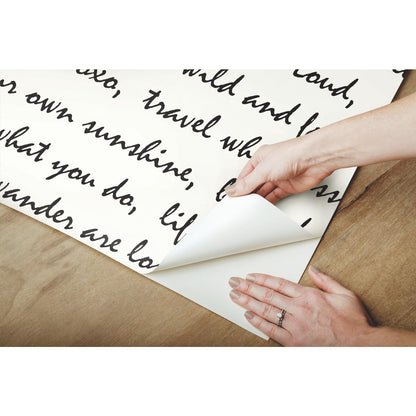 xoxo, wild and loud,
r own sunshine, travel wh and f
what you do, lif
wander are lo